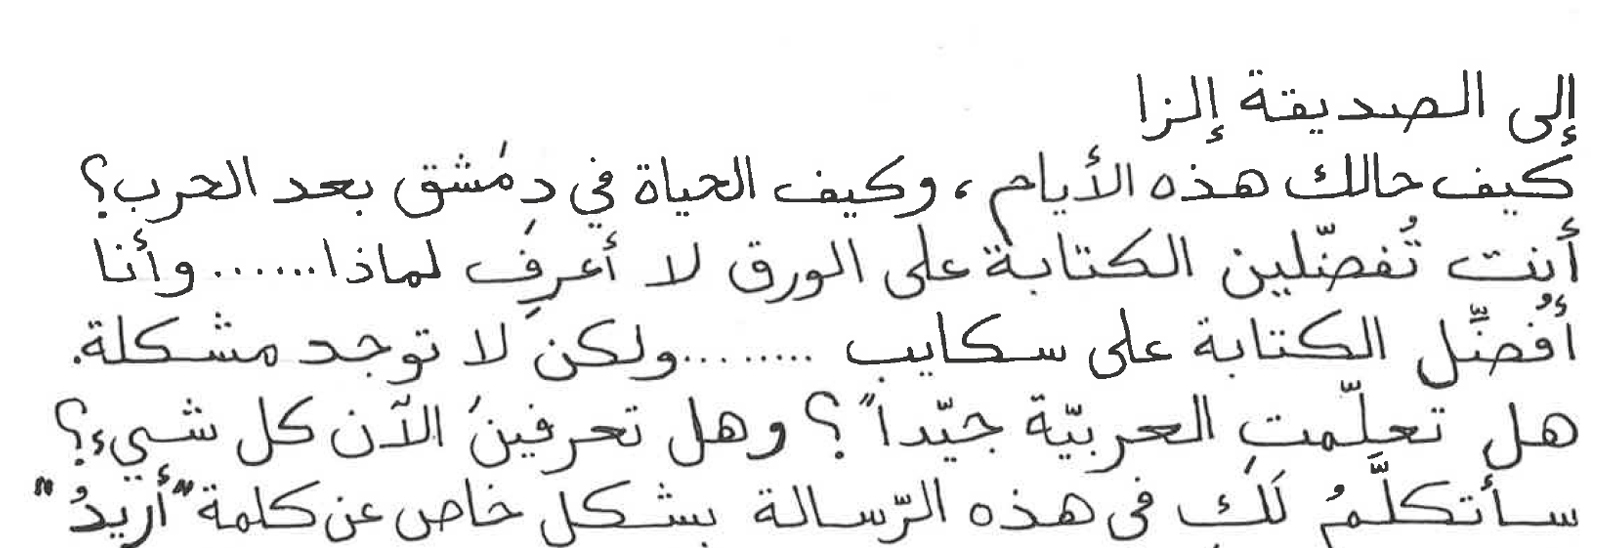 إلى الصديقة إلزا
كيف حالك هذه الأيام، وكيف الحياة في دمَشق بعد الحرب؟
أنت تُفضّلين الكتابة على الورق لا أعرِف لماذا...... وأنا
أُفضِّل الكتابة على سكايب ........ولكن لا توجد مشكلة.
هل تعلّمتِ العربيّة جيّداً؟ وهل تعرفينَ الآن كل شيء؟
سأتكلَّمُ لَكِ في هذه الرّسالة بشكل خاص عن كلمة "أريدُ"